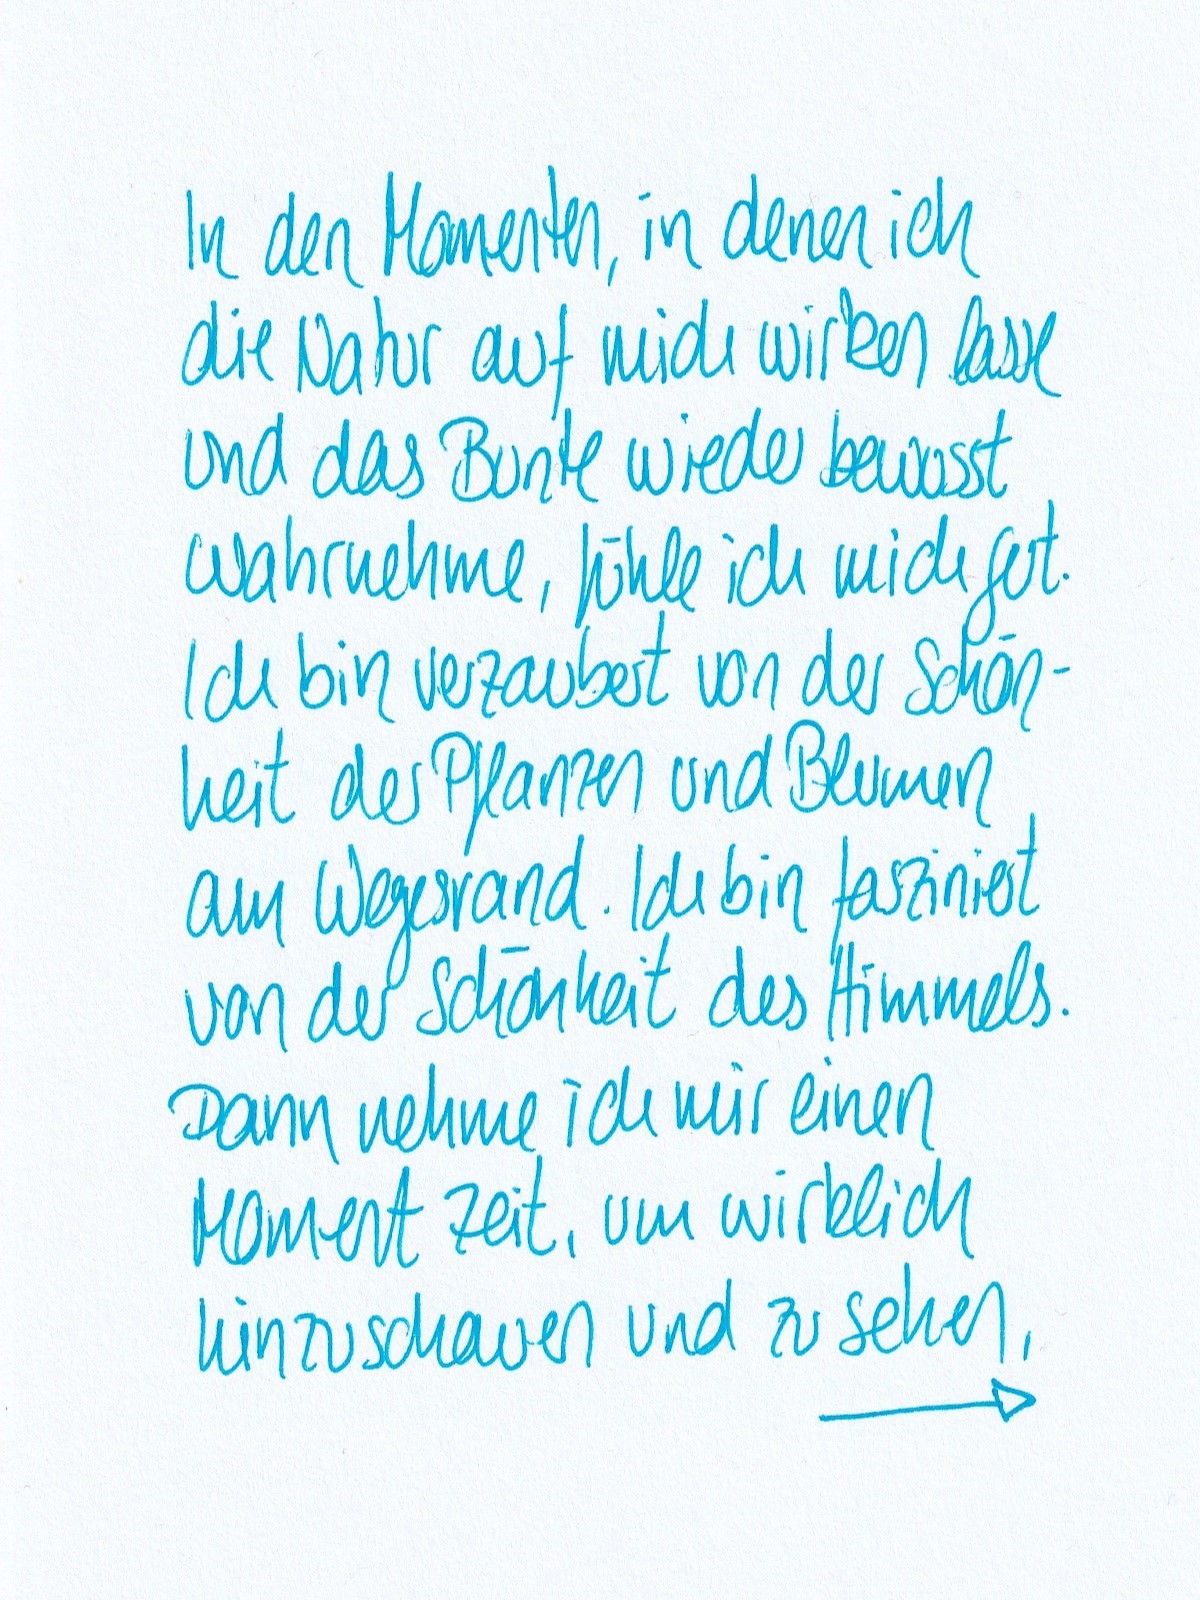 In den Momenten, in denen ich
die Natur auf mich wirken lasse
und das Bunte wieder bewusst
wahrnehme, fühle ich mich gut.
Ich bin verzaubert von der Schön-
heit der Pflanzen und Blumen
am Wegesrand. Ich bin fasziniert
von der Schönheit des Himmels.
Dann nehme ich mir einen
Moment Zeit, um wirklich
hinzuschauen und zu sehen,